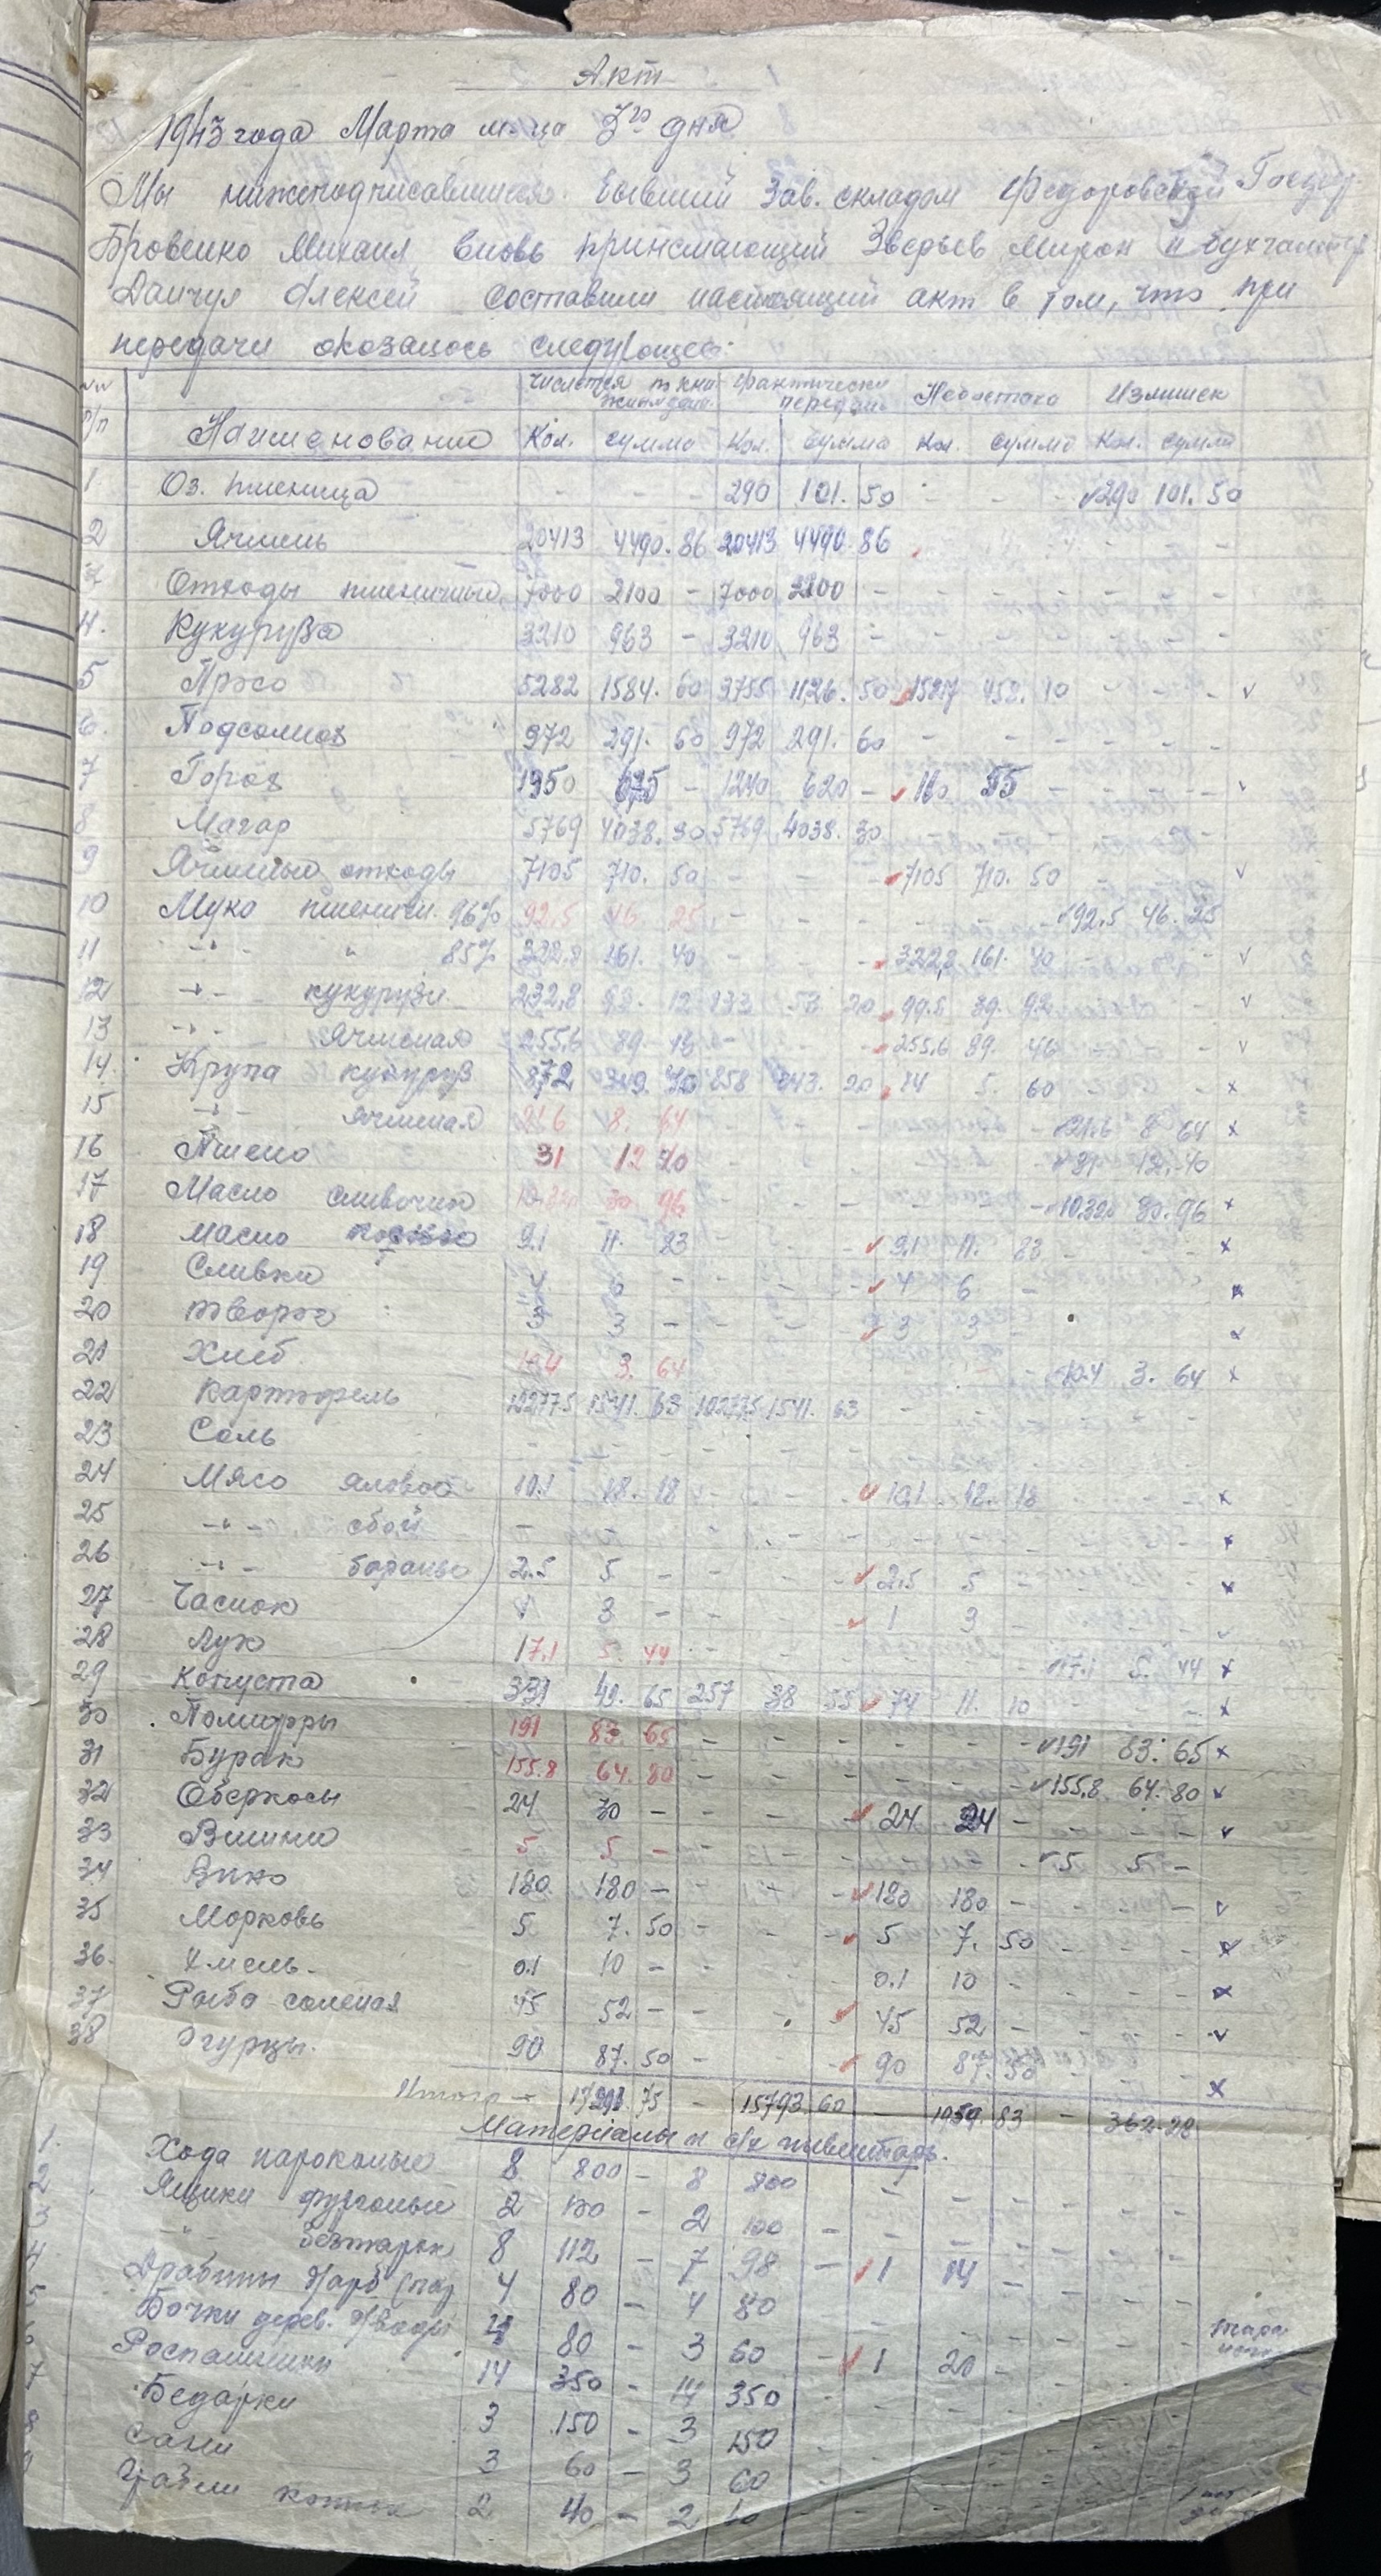 Акт
1943 года Марта м-ца 3го дня
Мы нижеподписавшиеся бывший зав. складом Федоровской
Бровенко Михаил, вновь принимающий Зверьев Мирон и бухгалтер
Данчул Алексей составили настоящий акт в том, что при
передачи оказалось следующее:
№№ п/п Наименование Числится по Фактически передано Недостача Излишек
Кол. сумма Кол. сумма Кол. сумма Кол. сумма
1 Оз. пшеница - - - 290 101. 50 - - - 290 101. 50
2 Ячмень 20413 4490. 86 20413 4490. 86 - -
3 Отходы пшеничные 7000 2100 - 7000 2100 - - - - - - -
4. Кукуруза 3210 963 - 3210 963 - - - - - - -
5 Просо 5282 1584. 60 3755 1126. 50 1527 458. 10 - - -
6. Подсолнох 972 291. 60 972 291. 60 - - - - - -
7 Горох 1350 675 - 1240 620 - 110 55 - - - -
8 Магар 5769 4038. 30 5769 4038. 30 - - - - -
9 Ячменые отходы 7105 710. 50 - - - 7105 710. 50 - - -
10 Мука пшеничн. 96% 92,5 46 25 - - - - - - 92.5 46. 25
11 -"- " 85% 322.8 161. 40 - - - 322,8 161. 40 - - -
12 -"- кукурузн. 232,8 93. 12 133 53. 20 99.8 39. 92 - - -
13 -"- Ячменая 255,6 89. 46 - - - 255,6 89. 46 - - -
14. Крупа кукуруз 872 349. 70 858 343. 20 14 5. 60 - - -
15 -"- ячменая 21.6 8. 64 - - - - 21.6 8 64
16 Пшено 31 12 40 - - - - 31 12. 40
17 Масло сливочно 10.320 30. 96 - - - - 10.320 30. 96
18 Масло 9.1 11. 83 - - 9.1 11. 83 - - -
19 Сливки 4 6 - - - - 4 6 -
20 Творог 3 3 - - - 3 3 -
21 Хлеб 10.4 3. 64 - 10.4 3. 64
22 Картофель 10277.5 1541. 63 10277.5 1541. 63 - - -
23 Соль - - - - - -
24 Мясо яловое 10.1 18. 18 - - - 10,1 18. 18 - - -
25 -"- сбой - - - - - -
26 -"- баранье 2.5 5 - - - - 2.5 5 - - -
27 Часнок 1 3 - - - - 1 3 - - -
28 Лук 17.1 5. 44 - - - - 17.1 5. 44
29 Капуста 331 49. 65 257 38 55 74 11. 10 - - -
30 Помидоры 191 83. 65 - - - - - - 191 83. 65
31 Бурак 155.8 64. 80 - - - - - - 155.8 64. 80
32 Аберкосы 24 30 - - - - 24 24 - - - -
33 Вишня 5 5 - - - - - - 5 5 -
34 Вино 180 180 - - - - 180 180 - - - -
35 Морковь 5 7. 50 - - - 5 7. 50 - - -
36. Хмель. 0.1 10 - - - 0.1 10 - - - -
37 Рыба соленая 45 52 - - - 45 52 - - - -
38 Огурцы. 90 87. 50 - - - 90 87. 50 - - -
Итого - 75 - 15793. 60 - 1959. 83 - 362. 28
Материалы и с/х инвентарь.
1. Хода пароконые 8 800 - 8 800 - - - - -
2 Ящики фургоные 2 100 - 2 100 - - - - - -
3 -"- безтарок 8 112 - 7 98 - 1 14 - - - -
4 Драбины 4 80 - 4 80 - - - - -
5 Бочки дерев. д/воды 4 80 - 3 60 - 1 20 - - -
6 Распашники 14 350 - 14 350 - - - - -
7 Бедарки 3 150 - 3 150 - - - - -
8 Сани 3 60 - 3 60 - - - - -
9 Грабли конные 2 40 - 2 40 - - - - -